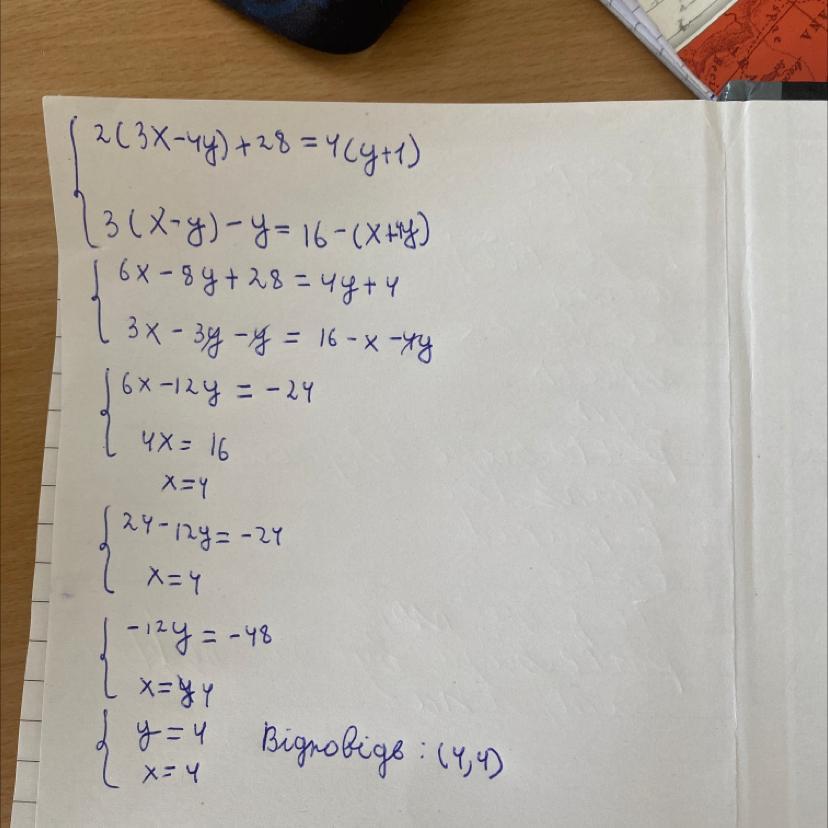 2(3x-4y)+28=4(y+1)
3(x-y)-y=16-(x+4y)
6x-8y+28=4y+4
3x-3y-y=16-x-4y
6x-12y=-24
4x=16
x=4
24-12y=-24
x=4
-12y=-48
x=4
y=4 Відповідь: (4,4)
x=4